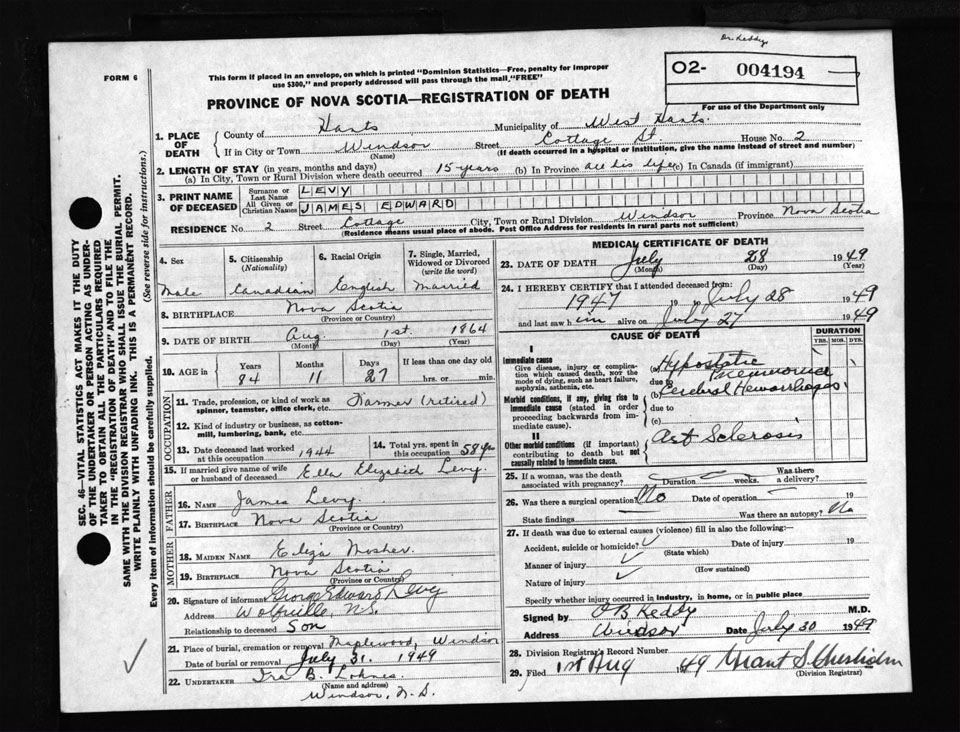 Dr. Reddy
FORM 6
This form if placed in an envelope, on which is printed "Dominion Statistics—Free, penalty for improper
use $300," and properly addressed will pass through the mail "FREE"
O2- 004194
For use of the Department only
PROVINCE OF NOVA SCOTIA—REGISTRATION OF DEATH
1. PLACE OF DEATH
County of Hants Municipality of West Hants.
If in City or Town Windsor Street Cottage St House No. 2
(Name) (If death occurred in a hospital or institution, give the name instead of street and number)
2. LENGTH OF STAY (in years, months and days)
(a) In City, Town or Rural Division where death occurred 15 years (b) In Province all his life (c) In Canada (if immigrant)
3. PRINT NAME OF DECEASED
Surname or Last Name LEVY
All Given or Christian Names JAMES EDWARD
RESIDENCE No. 2 Street Cottage City, Town or Rural Division Windsor Province Nova Scotia
(Residence means usual place of abode. Post Office Address for residents in rural parts not sufficient)
4. Sex
Male
5. Citizenship (Nationality)
Canadian
6. Racial Origin
English
7. Single, Married, Widowed or Divorced (write the word)
Married
8. BIRTHPLACE Nova Scotia
(Province or Country)
9. DATE OF BIRTH Aug. 1st. 1864
(Month) (Day) (Year)
10. AGE in Years Months Days If less than one day old
84 11 27 hrs. or min.
OCCUPATION
11. Trade, profession, or kind of work as spinner, teamster, office clerk, etc. Farmer (retired)
12. Kind of industry or business, as cotton-mill, lumbering, bank, etc.
13. Date deceased last worked at this occupation 1944
14. Total yrs. spent in this occupation 58 yrs
15. If married give name of wife or husband of deceased Ella Elizabeth Levy.
FATHER
16. NAME James Levy.
17. BIRTHPLACE Nova Scotia
(Province or Country)
MOTHER
18. MAIDEN NAME Eliza Mosher.
19. BIRTHPLACE Nova Scotia
(Province or Country)
20. Signature of informant George Edward Levy
Address Wolfville, N.S.
Relationship to deceased Son
21. Place of burial, cremation or removal Maplewood, Windsor
Date of burial or removal July 31. 1949
22. UNDERTAKER Ira B. Lohnes.
(Name and address)
Windsor, N.S.
MEDICAL CERTIFICATE OF DEATH
23. DATE OF DEATH July 28 1949
(Month) (Day) (Year)
24. I HEREBY CERTIFY that I attended deceased from:
1947 19 to July 28 1949
and last saw him alive on July 27 1949
CAUSE OF DEATH
DURATION
YRS. MOS. DYS.
I
Immediate cause
Give disease, injury or complication which caused death, not the mode of dying, such as heart failure, asphyxia, asthenia, etc.
(a) Hypostatic Pneumonia
due to
Morbid conditions, if any, giving rise to immediate cause (stated in order proceeding backwards from immediate cause).
(b) Cerebral Hemorrhages
due to
(c)
II
Other morbid conditions (if important) contributing to death but not causally related to immediate cause.
Art Sclerosis
25. If a woman, was the death associated with pregnancy? Duration weeks. Was there a delivery?
26. Was there a surgical operation? No Date of operation 19
State findings Was there an autopsy? No
27. If death was due to external causes (violence) fill in also the following:—
Accident, suicide or homicide? Date of injury 19
(State which)
Manner of injury
(How sustained)
Nature of injury
Specify whether injury occurred in industry, in home, or in public place
Signed by O B Keddy M.D.
Address Windsor Date July 30 1949
28. Division Registrar's Record Number
29. Filed 1st Aug 1949 Grant S. Chisholm
(Division Registrar)
SEC. 46—VITAL STATISTICS ACT MAKES IT THE DUTY
OF THE UNDERTAKER OR PERSON ACTING AS UNDER-
TAKER TO OBTAIN ALL THE PARTICULARS REQUIRED
IN THE "REGISTRATION OF DEATH" AND TO FILE THE
SAME WITH THE DIVISION REGISTRAR WHO SHALL ISSUE THE BURIAL PERMIT.
WRITE PLAINLY WITH UNFADING INK. THIS IS A PERMANENT RECORD.
Every item of information should be carefully supplied. (See reverse side for instructions.)